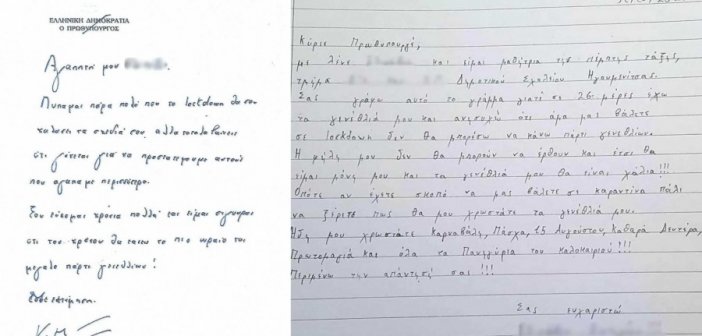 ΕΛΛΗΝΙΚΗ ΔΗΜΟΚΡΑΤΙΑ
Ο ΠΡΩΘΥΠΟΥΡΓΟΣ
Αγαπητή μου
Λυπάμαι πάρα πολύ που το lockdown θα σου
χαλάσει τα σχέδιά σου, αλλά
ότι γίνεται για να προστατέψουμε αυτούς
που αγαπάμε περισσότερο.
Σου εύχομαι χρόνια πολλά και είμαι σίγουρος
ότι του χρόνου θα κάνεις το πιο ωραίο και
μεγάλο πάρτι γενεθλίων!
Με εκτίμηση,
Κ.Μ
Κύριε Πρωθυπουργέ,
με λένε και είμαι μαθήτρια της πέμπτης τάξης,
τμήμα Δημοτικού Σχολείου Ηγουμενίτσας.
Σας γράφω αυτό το γράμμα γιατί σε 26 μέρες έχω
τα γενέθλιά μου και ανησυχώ ότι άμα μας βάλετε
σε lockdown δεν θα μπορέσω να κάνω πάρτι γενεθλίων.
Η φίλες μου δεν θα μπορούν να έρθουν και έτσι θα
είμαι μόνη μου και τα γενέθλιά μου θα είναι χάλια!!!
Οπότε αν έχετε σκοπό να μας βάλετε σε καραντίνα πάλι
να ξέρετε πως θα μου χρωστάτε τα γενέθλιά μου.
Ήδη μου χρωστάτε Καρναβάλι, Πάσχα, 15 Αυγούστου, Καθαρά Δευτέρα,
Πρωτομαγιά και όλα τα Πανηγύρια του καλοκαιριού!!!
Περιμένω την απάντησή σας!!!
Σας ευχαριστώ